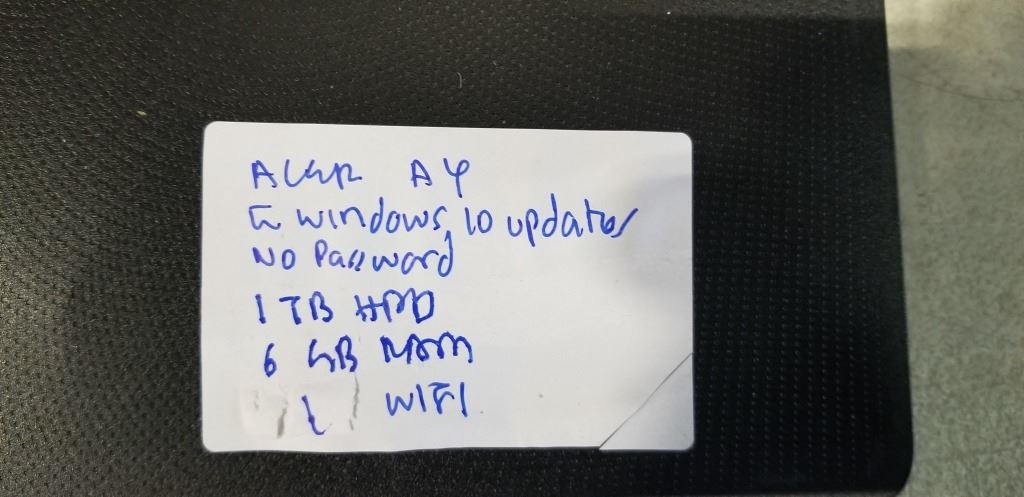 A4
windows 10 updates
No Password
1 TB HDD
6 GB RAM
WIFI